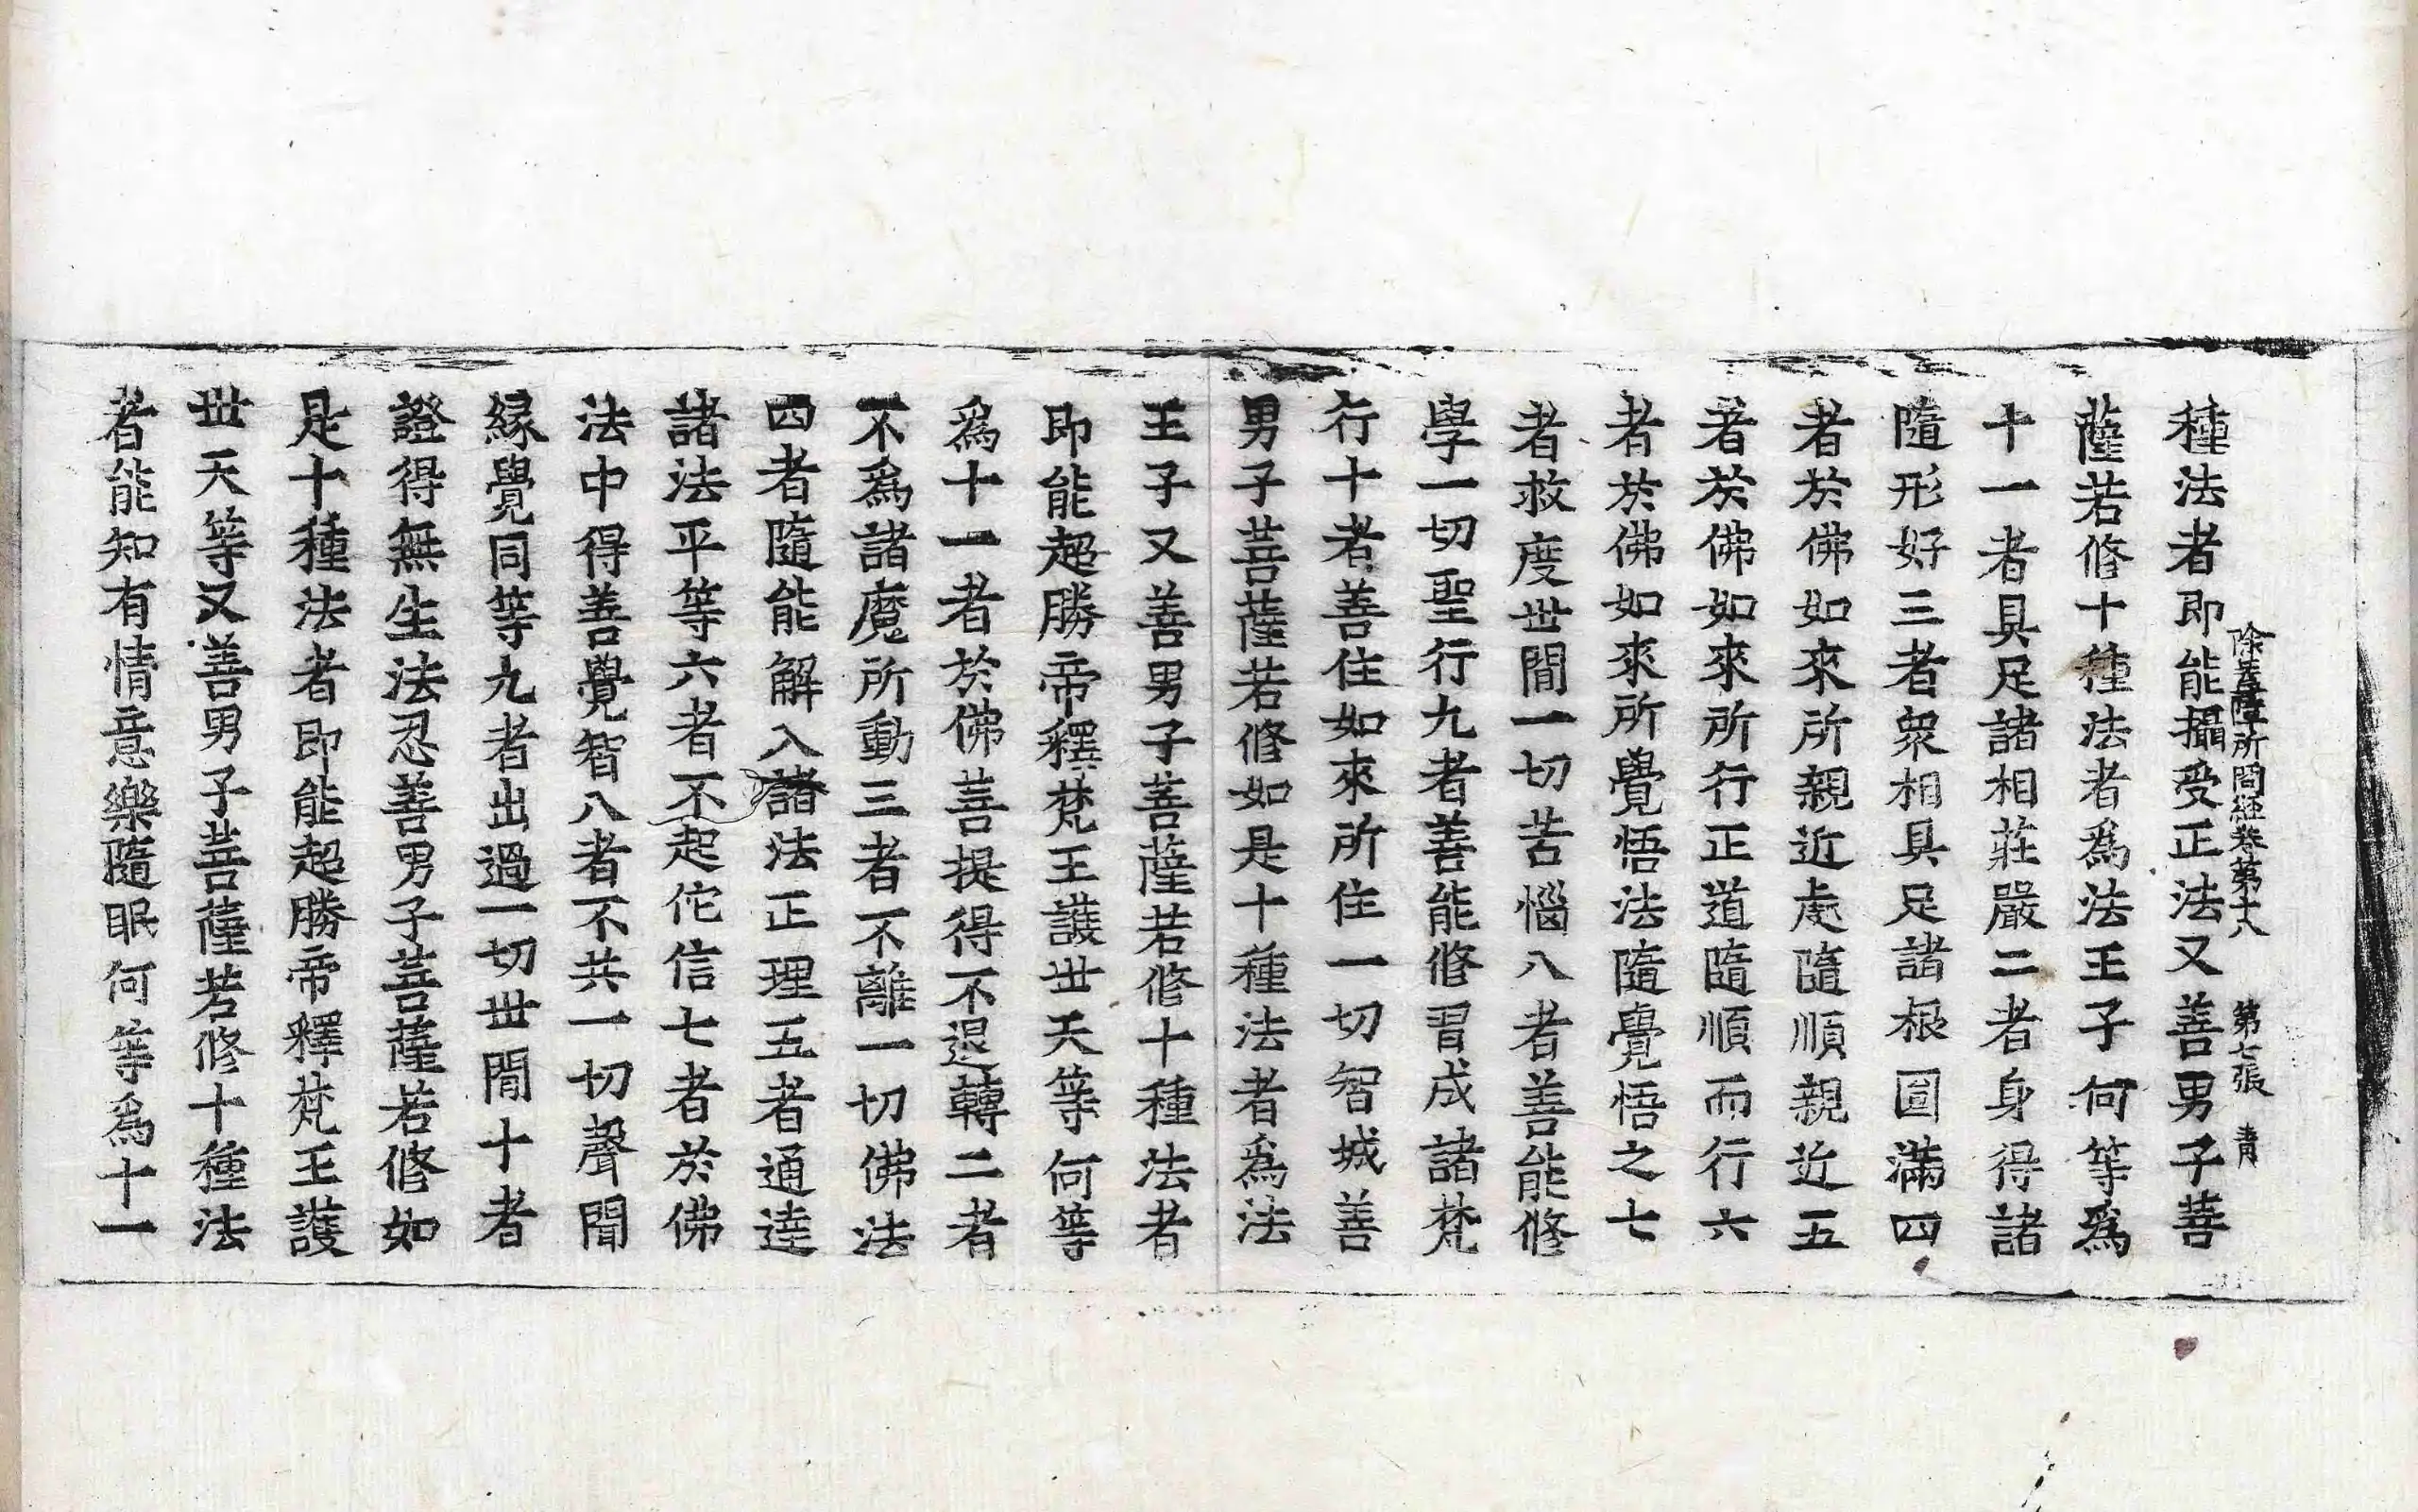 除蓋障所問經卷第十八　第七張　青
種法者即能攝受正法又善男子菩
薩若修十種法者爲法王子何等爲
十一者具足諸相莊嚴二者身得諸
隨形好三者衆相具足諸根圓滿四
者於佛如來所親近處隨順親近五
者於佛如來所行正道隨順而行六
者於佛如來所覺悟法隨覺悟之七
者救度世間一切苦惱八者善能修
學一切聖行九者善能修習成諸梵
行十者善住如來所住一切智城善
男子菩薩若修如是十種法者爲法
王子又善男子菩薩若修十種法者
即能超勝帝釋梵王護世天等何等
爲十一者於佛菩提得不退轉二者
不爲諸魔所動三者不離一切佛法
四者隨能解入諸法正理五者通達
諸法平等六者不起佗信七者於佛
法中得善覺智八者不共一切聲聞
緣覺同等九者出過一切世間十者
證得無生法忍善男子菩薩若修如
是十種法者即能超勝帝釋梵王護
世天等又善男子菩薩若修十種法
者能知有情意樂隨眠何等爲十一